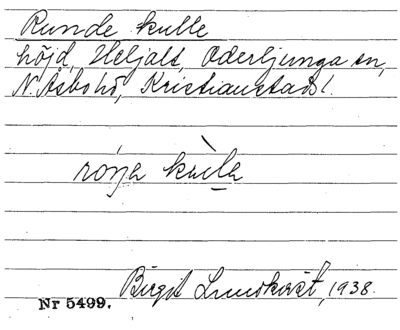 Runde kulle
höjd, Heljalt, Oderljunga sn,
N. Åsbo hd, Kristianstads l.
kulla
Birgit Lundkvist, 1938.
Nr 5499.